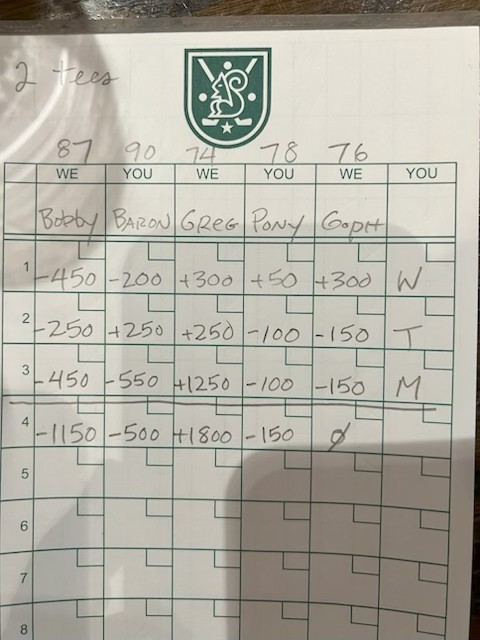 2 tees
87 90 74 78 76
WE YOU WE YOU WE YOU
Bobby BARON GREG PONY GOPH
1 -450 -200 +300 +50 +300 W
2 -250 +250 +250 -100 -150 T
3 -450 -550 +1250 -100 -150 M
4 -1150 -500 +1800 -150 Ø
5
6
7
8